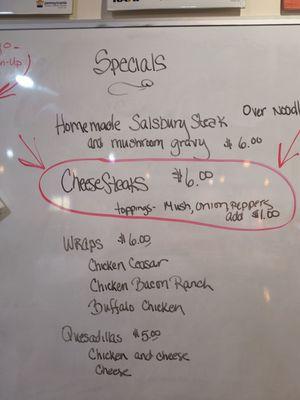 pennsylvania
Specials
Homemade Salsbury Steak Over Noodl
and mushroom gravy $6.00
CheeseSteaks $6.00
toppings- Mush, Onion, Peppers
add $1.00
Wraps $6.00
Chicken Ceasar
Chicken Bacon Ranch
Buffalo Chicken
Quesadillas $5.00
Chicken and cheese
Cheese